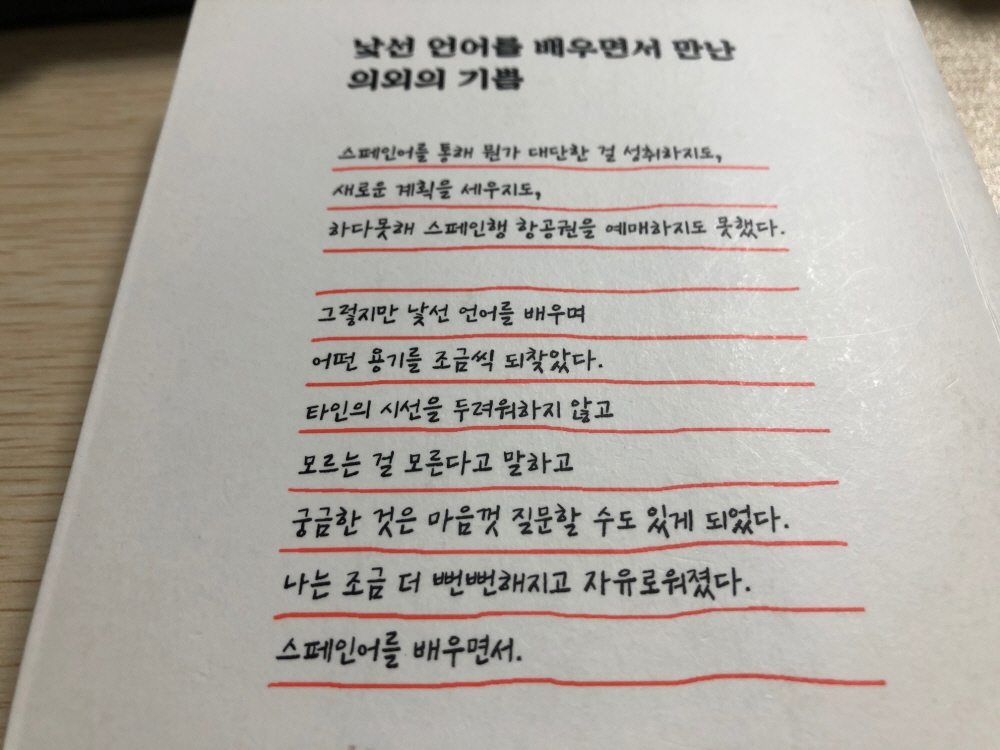 낯선 언어를 배우면서 만난
의외의 기쁨
스페인어를 통해 뭔가 대단한 걸 성취하지도,
새로운 계획을 세우지도,
하다못해 스페인행 항공권을 예매하지도 못했다.
그렇지만 낯선 언어를 배우며
어떤 용기를 조금씩 되찾았다.
타인의 시선을 두려워하지 않고
모르는 걸 모른다고 말하고
궁금한 것은 마음껏 질문할 수도 있게 되었다.
나는 조금 더 뻔뻔해지고 자유로워졌다.
스페인어를 배우면서.